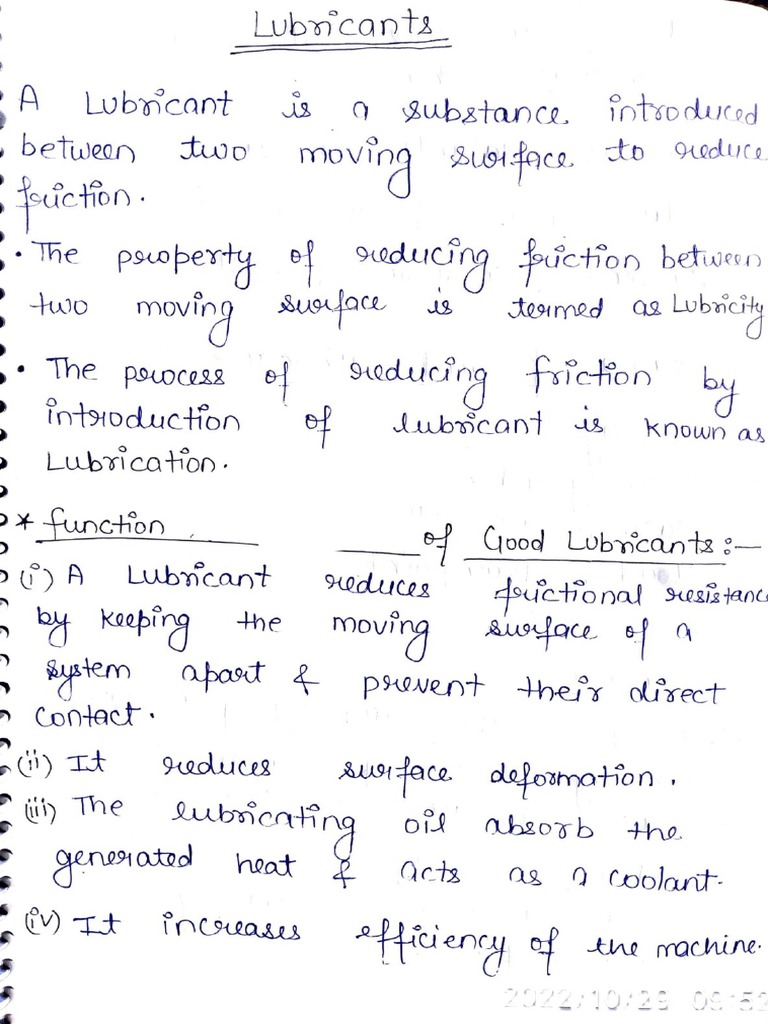 Lubricants
A Lubricant is a substance introduced
between two moving surface to reduce
friction.
• The property of reducing friction between
two moving surface is termed as Lubricity
• The process of reducing friction by
introduction of lubricant is known as
Lubrication.
* function of Good Lubricants:-
(i) A Lubricant reduces frictional resistanc
by keeping the moving surface of a
system apart & prevent their direct
contact.
(ii) It reduces surface deformation.
(iii) The lubricating oil absorb the
generated heat & acts as a coolant.
(iv) It increases efficiency of the machine.
2022/10/29 09:52